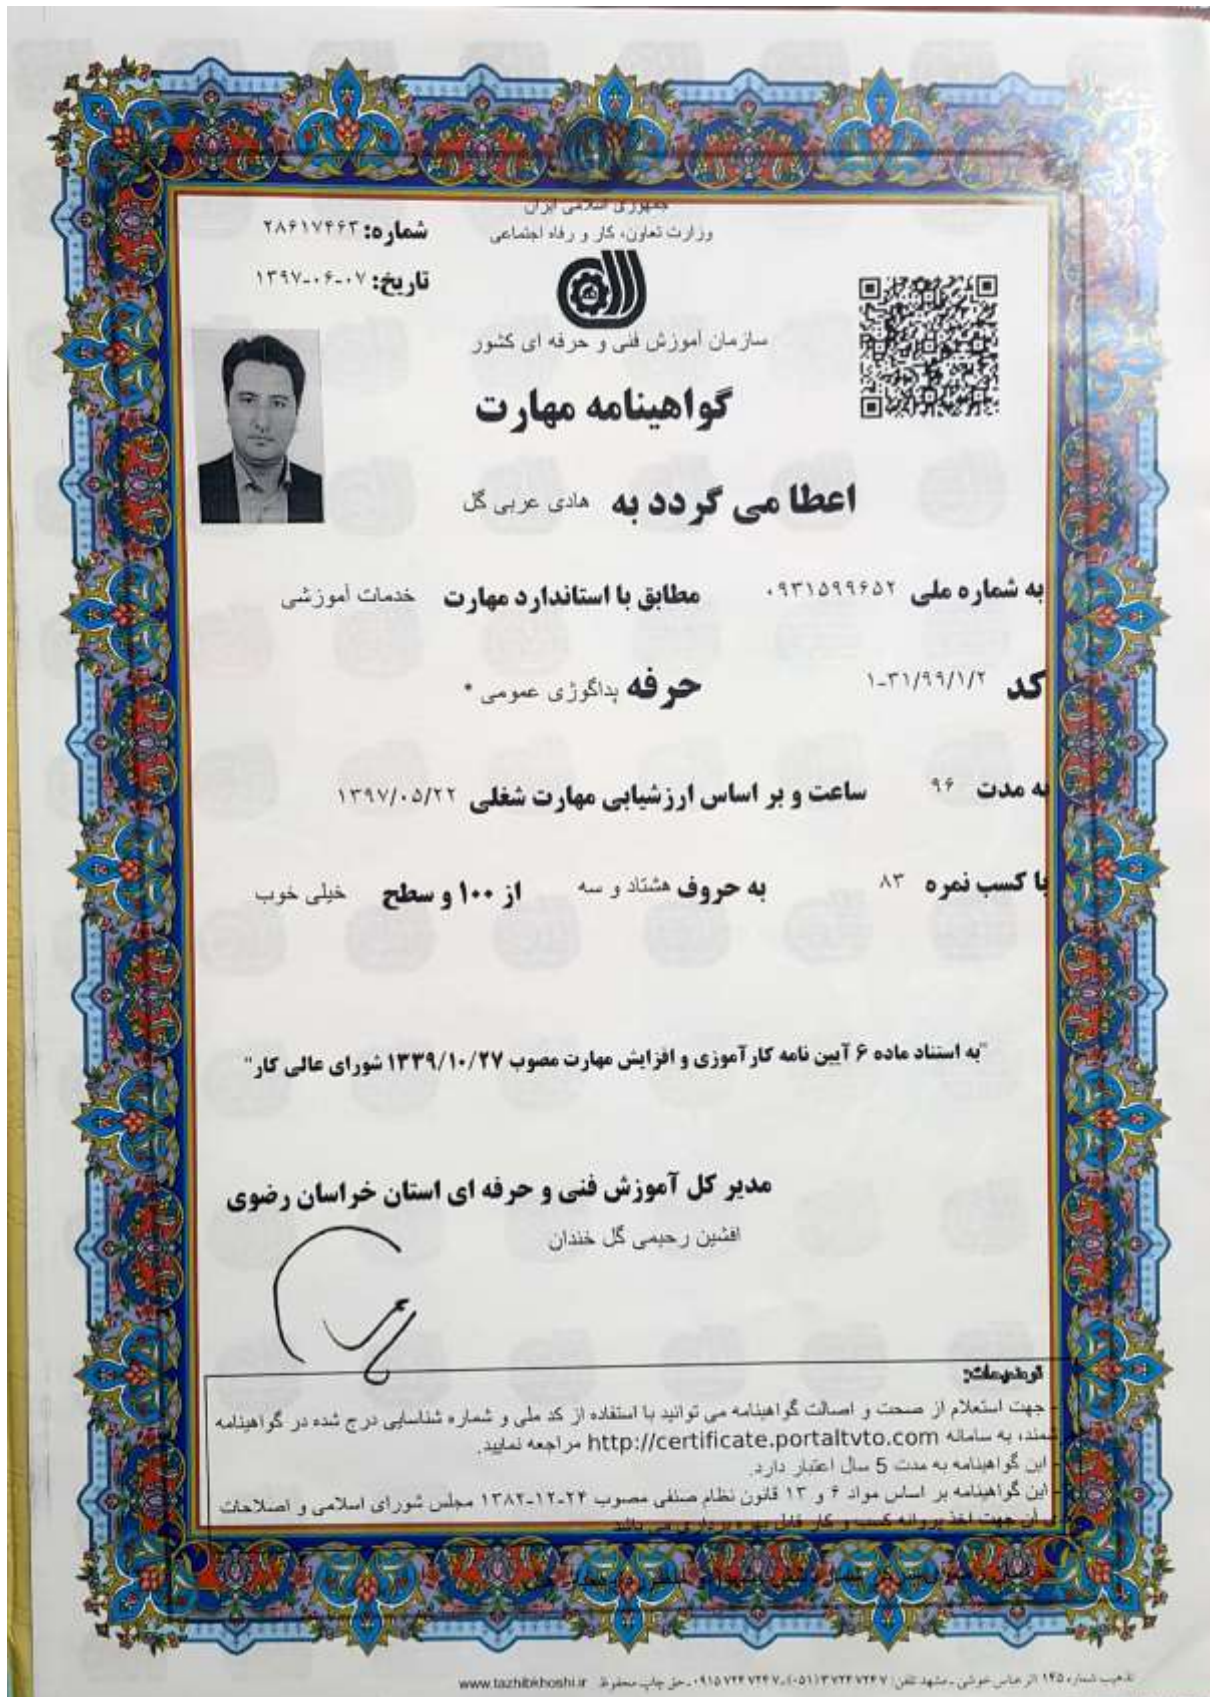 جمهوری اسلامی ایران
وزارت تعاون، کار و رفاه اجتماعی
شماره: ۲۸۶۱۷۴۶۳
تاریخ: ۱۳۹۷-۰۶-۰۷
سازمان آموزش فنی و حرفه ای کشور
گواهینامه مهارت
اعطا می گردد به هادی عربی گل
به شماره ملی ۰۹۳۱۵۹۹۶۵۲ مطابق با استاندارد مهارت خدمات آموزشی
کد ۱-۳۱/۹۹/۱/۲ حرفه پداگوژی عمومی *
به مدت ۹۶ ساعت و بر اساس ارزشیابی مهارت شغلی ۱۳۹۷/۰۵/۲۲
با کسب نمره ۸۳ به حروف هشتاد و سه از ۱۰۰ و سطح خیلی خوب
"به استناد ماده ۶ آیین نامه کارآموزی و افزایش مهارت مصوب ۱۳۳۹/۱۰/۲۷ شورای عالی کار"
مدیر کل آموزش فنی و حرفه ای استان خراسان رضوی
افشین رحیمی گل خندان
توضیحات:
- جهت استعلام از صحت و اصالت گواهینامه می توانید با استفاده از کد ملی و شماره شناسایی درج شده در گواهینامه
به سامانه http://certificate.portaltvto.com مراجعه نمایید.
- این گواهینامه به مدت 5 سال اعتبار دارد.
- این گواهینامه بر اساس مواد ۶ و ۱۳ قانون نظام صنفی مصوب ۲۴-۱۲-۱۳۸۲ مجلس شورای اسلامی و اصلاحات
آن جهت اخذ پروانه کسب و کار قابل بهره برداری می باشد.
تذهیب شماره ۱۴۵ اثر عباس خوشی - مشهد تلفن: ۳۷۲۴۷۲۴۷ (۰۵۱) - ۰۹۱۵۷۲۴۷۲۴۷ - حق چاپ محفوظ www.tazhibkhoshi.ir